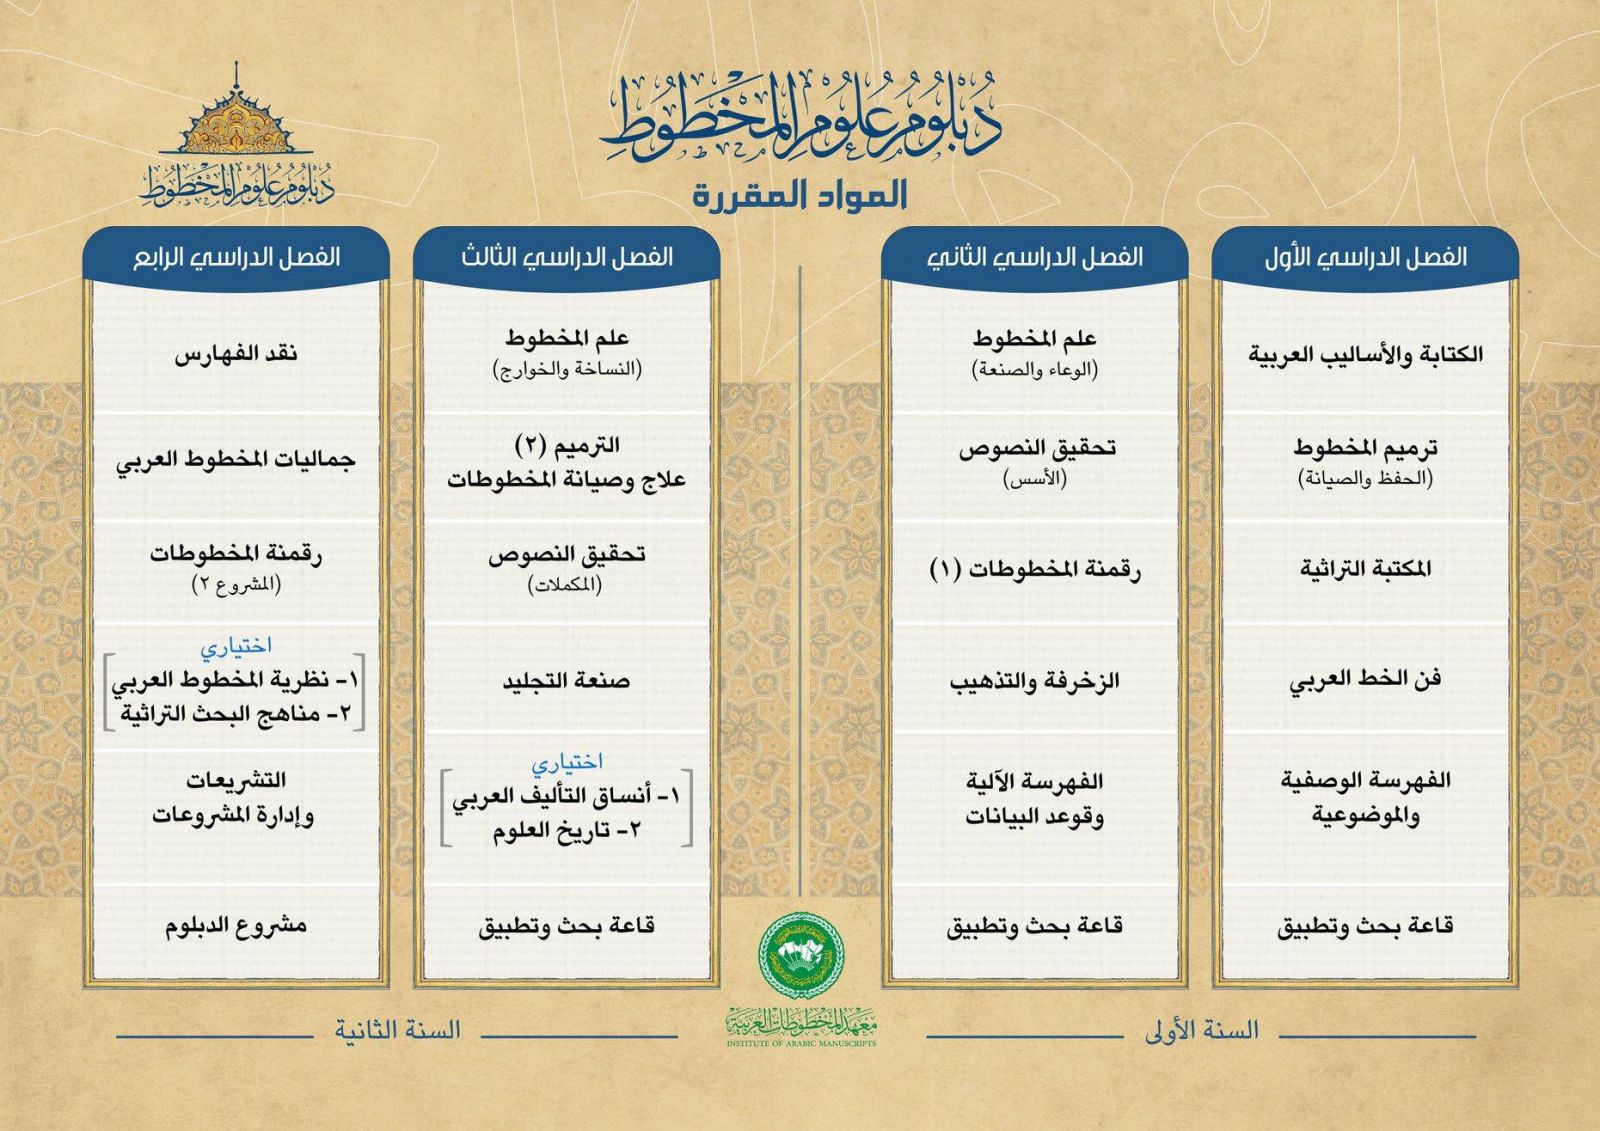 دُبلومُ عُلومِ المَخطوطِ
المواد المقررة
دُبلومُ عُلومِ المَخطوطِ
الفصل الدراسي الأول
الكتابة والأساليب العربية
ترميم المخطوط
(الحفظ والصيانة)
المكتبة التراثية
فن الخط العربي
الفهرسة الوصفية
والموضوعية
قاعة بحث وتطبيق
الفصل الدراسي الثاني
علم المخطوط
(الوعاء والصنعة)
تحقيق النصوص
(الأسس)
رقمنة المخطوطات (١)
الزخرفة والتذهيب
الفهرسة الآلية
وقوعد البيانات
قاعة بحث وتطبيق
السنة الأولى
الفصل الدراسي الثالث
علم المخطوط
(النساخة والخوارج)
الترميم (٢)
علاج وصيانة المخطوطات
تحقيق النصوص
(المكملات)
صنعة التجليد
اختياري
١- أنساق التأليف العربي
٢- تاريخ العلوم
قاعة بحث وتطبيق
الفصل الدراسي الرابع
نقد الفهارس
جماليات المخطوط العربي
رقمنة المخطوطات
(المشروع ٢)
اختياري
١- نظرية المخطوط العربي
٢- مناهج البحث التراثية
التشريعات
وإدارة المشروعات
مشروع الدبلوم
السنة الثانية
معهد المخطوطات العربية
INSTITUTE OF ARABIC MANUSCRIPTS